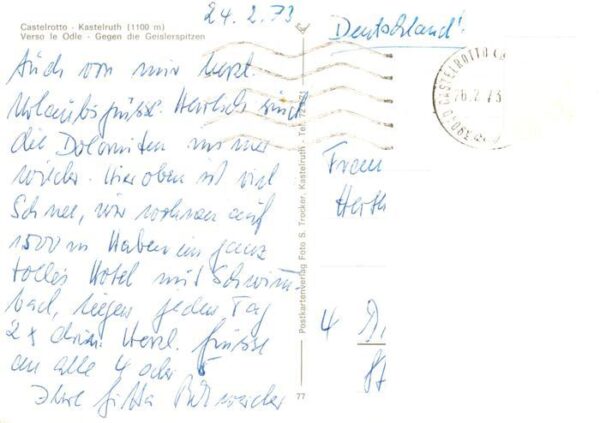 24.2.73
Castelrotto - Kastelruth (1100 m)
Verso le Odle - Gegen die Geislerspitzen
Auch von mir herzl.
Urlaubsgrüsse. Herrlich sind
die Dolomiten immer
wieder. Hier oben ist viel
Schnee, wir wohnen auf
1500 m Haben ein ganz
tolles Hotel mit Schwimm-
bad, liegen jeden Tag
2 x drin. Herzl. Grüsse
an alle 4 oder 5
Ihre Gitta
Postkartenverlag Foto S. Trocker, Kastelruth - Tel.
77
Deutschland!
39040 CASTELROTTO
26.2.73
Frau
Herth
4